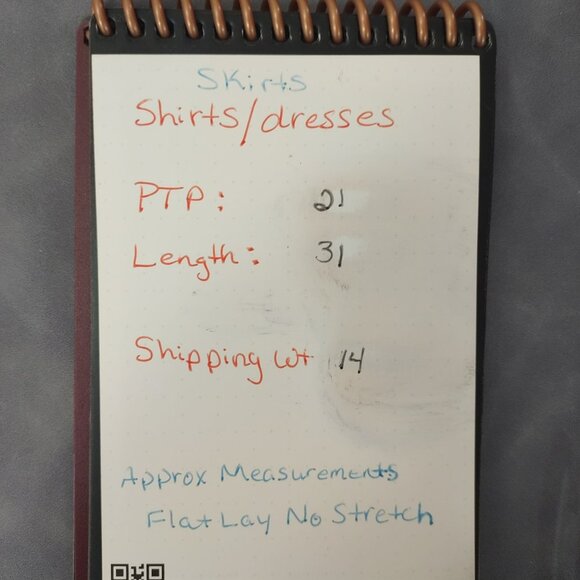 Skirts
Shirts/dresses
PTP: 21
Length: 31
Shipping Wt 14
Approx Measurements
Flat Lay No Stretch